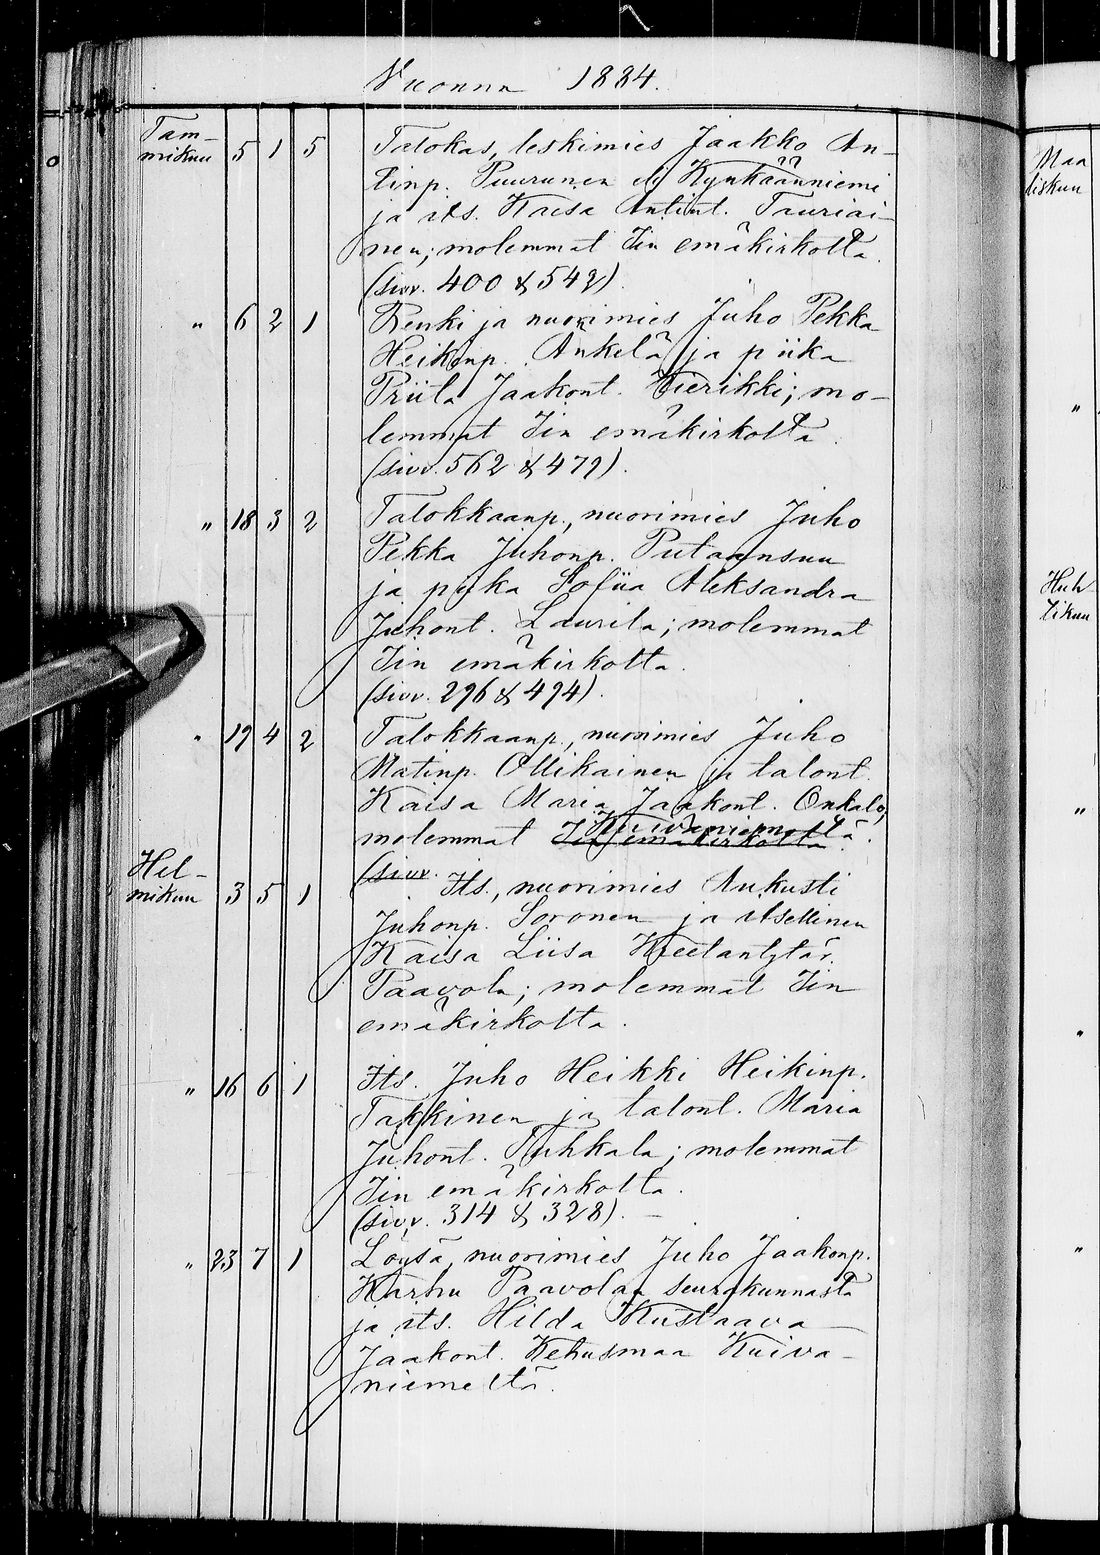 Vuonna 1884.
Tam-
mikuu 5 1 5 Talokas, leskimies Jaakko An-
tinp. Puurunen ely Kynkäänniemi
ja its. Kaisa Antint. Tauriai-
nen; molemmat Iin emäkirkolta.
(sivv. 400 & 542).
" 6 2 1 Renki ja nuorimies Juho Pekka
Heikinp. Ankelä ja piika
Priita Jaakont. Wierikki; mo-
lemmat Iin emäkirkolta.
(sivv. 562 & 479).
" 18 3 2 Talokkaanp., nuorimies Juho
Pekka Juhonp. Putaansuu
ja piika Sofiia Aleksandra
Juhont. Laurila; molemmat
Iin emäkirkolta.
(sivv. 296 & 494).
" 19 4 2 Talokkaanp., nuorimies Juho
Matinp. Ollikainen ja talont.
Kaisa Maria Jaakont. Onkalo,
Kuivaniemeltä
molemmat Iin emäkirkolta.
(sivv.
Hel-
mikuu 3 5 1 Its., nuorimies Aukusti
Juhonp. Soronen ja itsellinen
Kaisa Liisa Kreetantytär
Paavola; molemmat Iin
emäkirkolta.
" 16 6 1 Its. Juho Heikki Heikinp.
Takkinen ja talont. Maria
Juhont. Tuhkala; molemmat
Iin emäkirkolta.
(sivv. 314 & 328).
" 23 7 1 Löysä, nuorimies Juho Jaakonp.
Karhu Paavolan seurakunnasta
ja its. Hilda Kustaava
Jaakont. Kehusmaa Kuiva-
niemeltä.
Maa
liskuu
"
Huh
tikuu
"
"
"